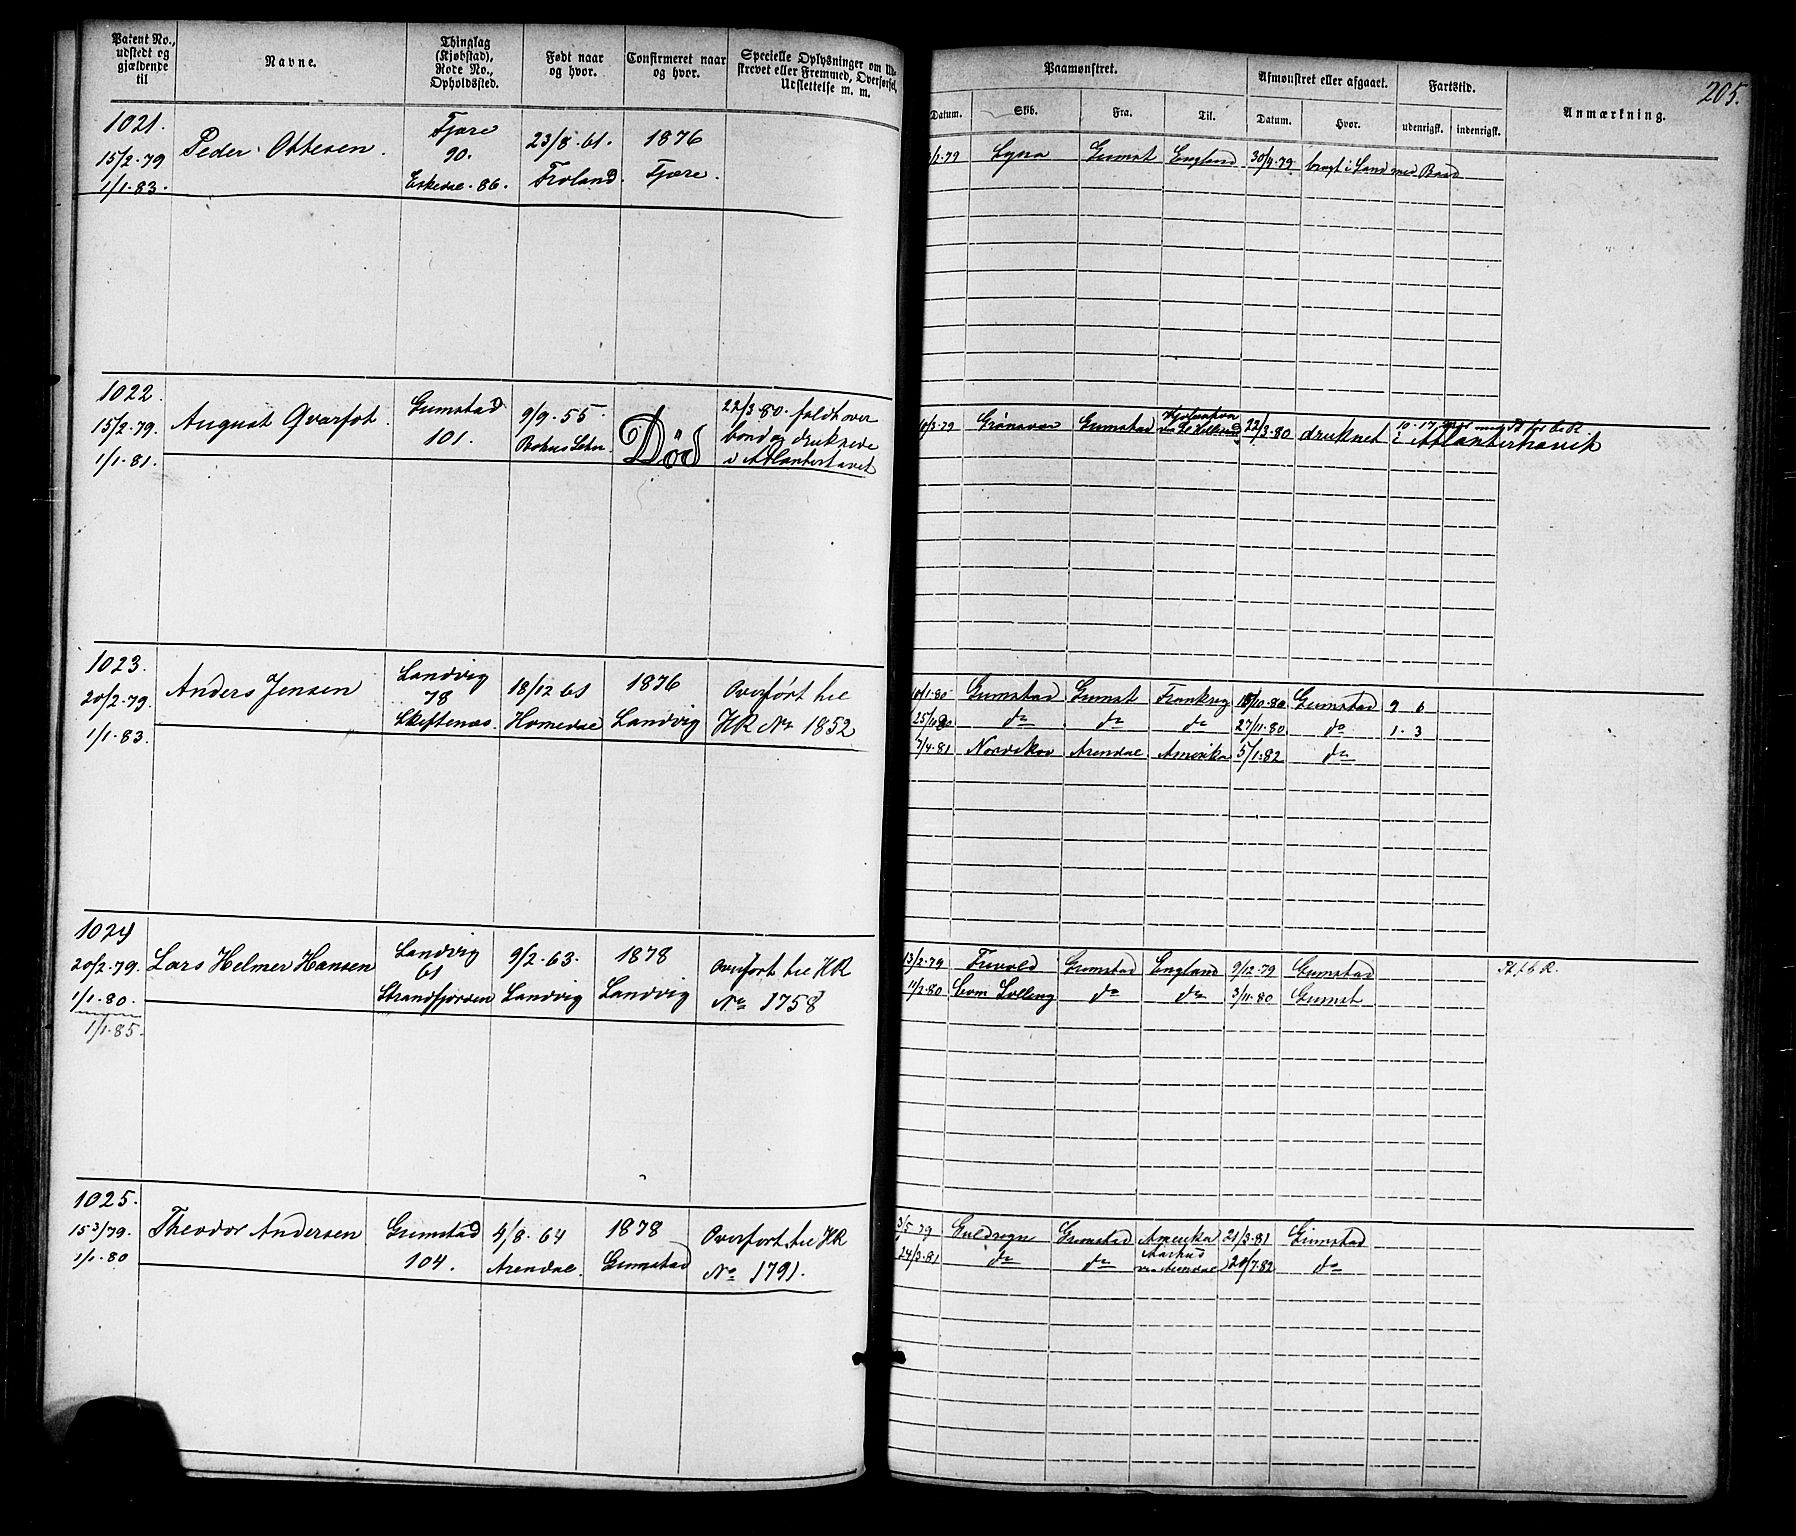 Patent No., udstedt og gjældende til
Navne.
Thinglag (Kjøbstad), Rode No., Opholdssted.
Født naar og hvor.
Confirmeret naar og hvor.
Specielle Oplysninger om Ud-
skrevet eller Fremmed, Overførsel,
Udslettelse m. m.
Paamønstret.
Afmønstret eller afgaaet.
Fartstid.
Anmærkning.
205.
Datum.
Skib.
Fra.
Til.
Datum.
Hvor.
udenrigsk.
indenrigsk.
1021.
15/2-79
1/1-83.
Peder Ottesen.
Fjære
90.
Eskedal-86.
23/8-61.
Froland.
1876
Fjære.
Lyna Grmst England 30/9-79 bragt i Land med Baad
1022.
15/2-79.
1/1-81.
August Qvarfot
Grimstad
101.
9/9-55
Bohus Lehn
Død
22/3-80. faldt over
bord og druknede
i Atlanterhavet
10/3-79 Grønsvær Grimstad 22/3-80 druknet
i Atlanterhavet
1023.
20/2-79.
1/1-83.
Anders Jensen
Landvig
78
Skiftenæs.
18/12 61
Homedal
1876
Landvig
Overført til
HR No 1852
10/1-80 Grimstad Grmst Frankrig 18/10-80 Grimstad 9 6
25/10 80 do do do 27/11-80 do 1. 3
7/4-81 Nordskov Arendal Amerika 5/1-82 do
1024
20/2-79.
1/1-80.
1/1-85.
Lars Helmer Hansen
Landvig
61
Strandfjorden
9/2-63.
Landvig
1878
Landvig
Overført til HR
No 1758
13/2-79 Frivold Grimstad England 9/12-79 Grimstad
11/2-80 Tolling do do 3/11-80 Grimst
1025.
15 3/79.
1/1-80
Theodor Andersen
Grimstad
104.
4/8-64
Arendal.
1878
Grimstad
Overført til HR
No 1791.
3/5-79 Guldregn Grimstad Amerika 21/3-81 Grimstad
24/3-81 do do Aarhus
via Arendal 20/7-82 do